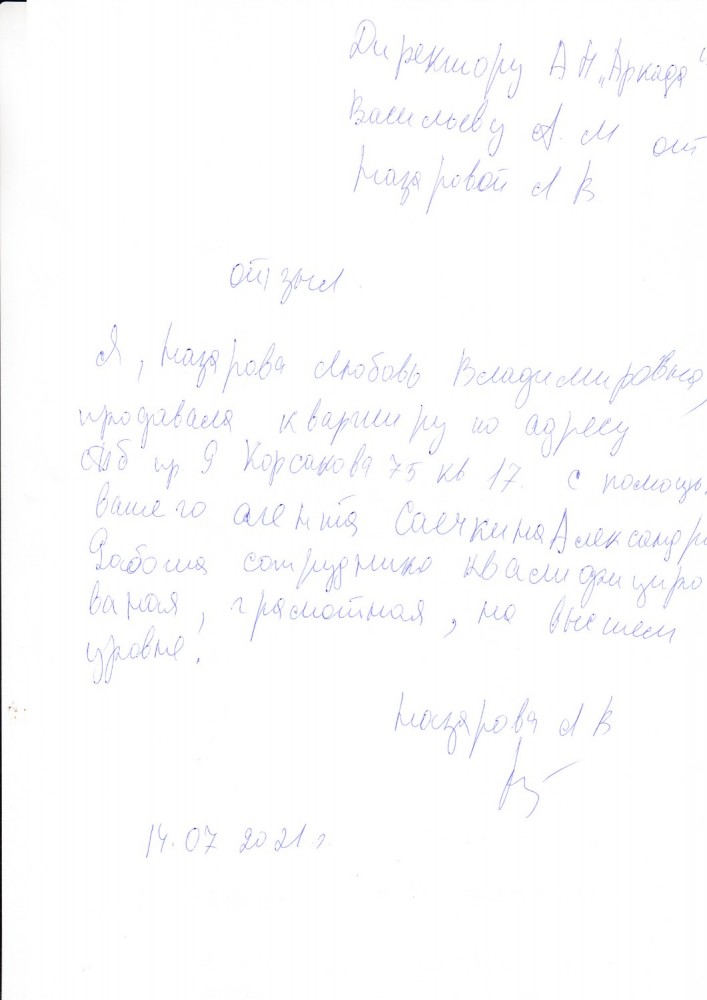 Директору АН „Аркада"
Васильеву А. М от
Назаровой Л В
отзыв.
Я, Назарова Любовь Владимировна,
продавала квартиру по адресу
пр Я Корсакова 75 кв 17. с помощь
вашего агента Саечкина Александр
Работа сотрудника квалифициро
ваная, грамотная, на высшем
уровне!
Назарова Л В
14.07 2021 г